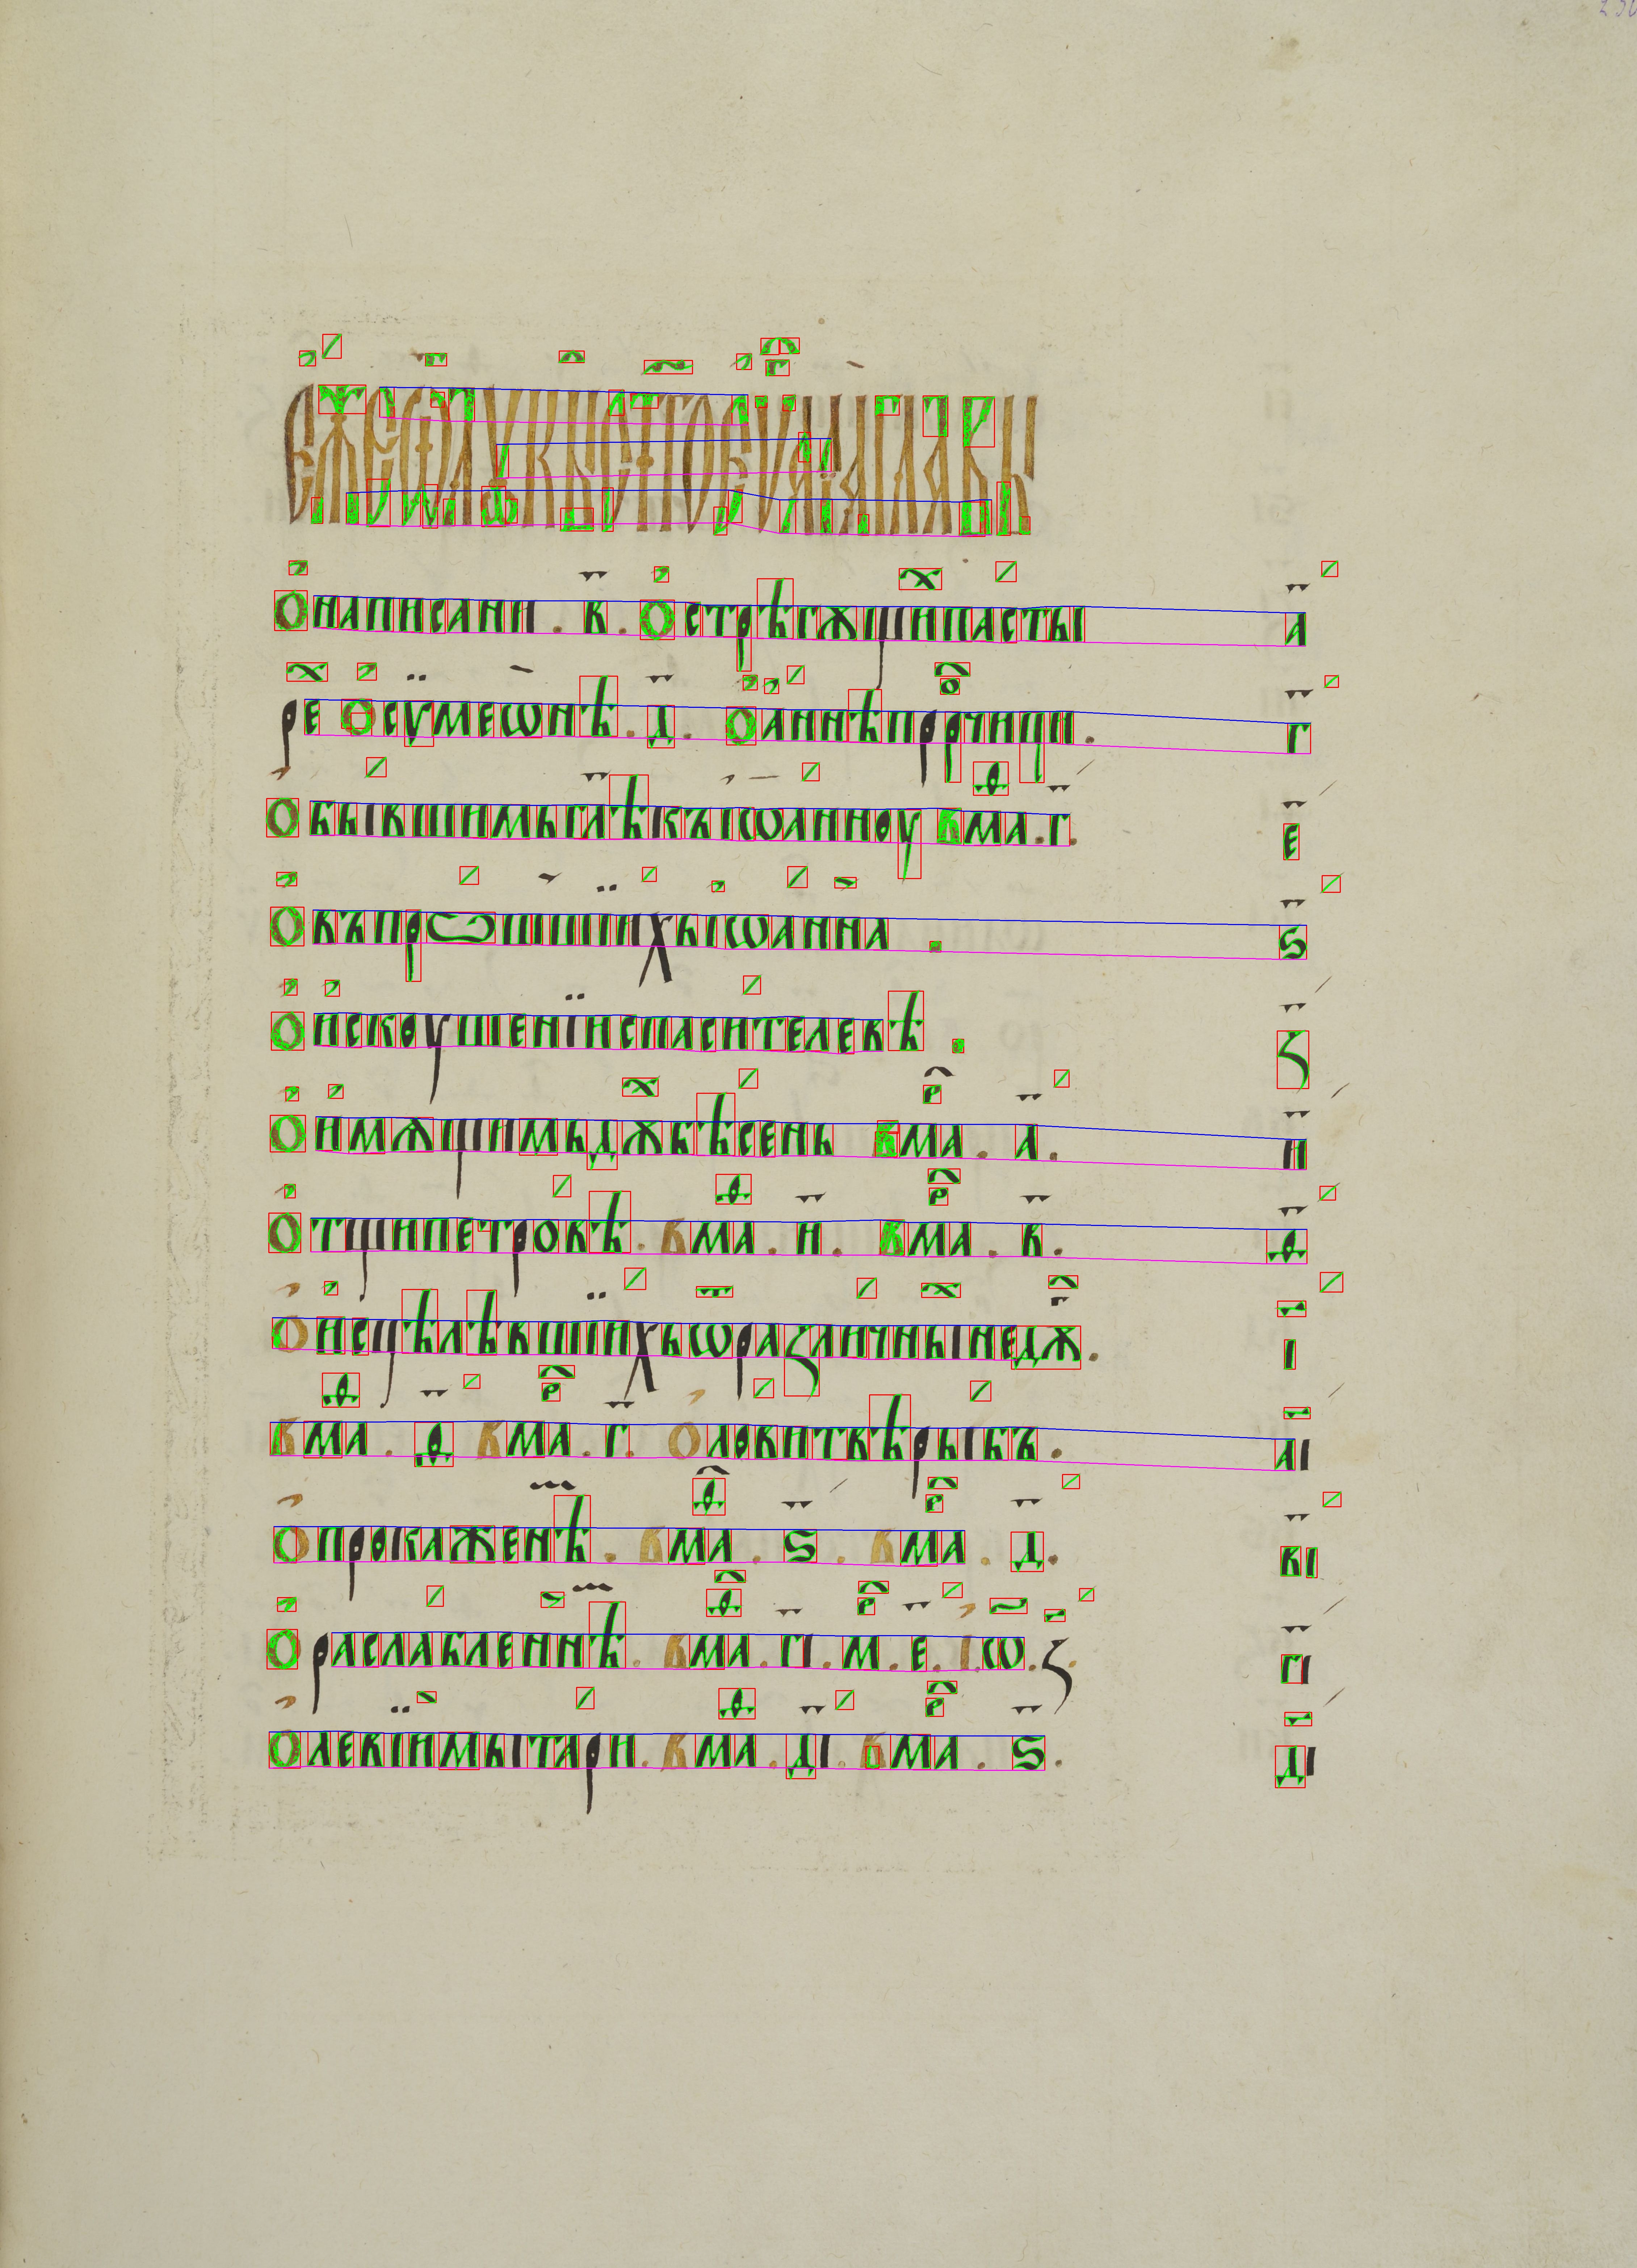 еже ѿ лукы ст҃ое еѵⷢ҇алїе главы
О написании . в҃ . О стрѣгѫщи́хъ пасты а҃
ре О сумеѡнѣ . д҃ . О аннѣ прⷪ҇рчици . г҃
О бывшимь гл҃ѣ къ іѡанноу в маⷴ . г҃ . е҃
О въпрошьшиихь іѡанна . ѕ҃
О искоушенїи спасителевѣ . з҃
О имѫщимь дꙋхъ бѣсень в маⷬ҇ . а҃ . и҃
О тьщи петровѣ . в маⷴ . и҃ . в маⷬ҇ . в҃ . ѳ҃
О исцѣлѣвшїихь ѿ различныи недѫгъ . і҃
в маⷴ . ѳ҃ в маⷬ҇ . г҃ . О ловитвѣ рыбъ . аі҃
О прокаженѣмь . в маⷴ . ѕ҃ . в маⷬ҇ . д҃ . ві҃
О раслабленнѣмь . в маⷴ . гі҃ . м . е҃ . іѡ . з҃ . гі҃
О левїи мытари . в маⷴ . ді҃ . в маⷬ҇ . ѕ҃ . ді҃